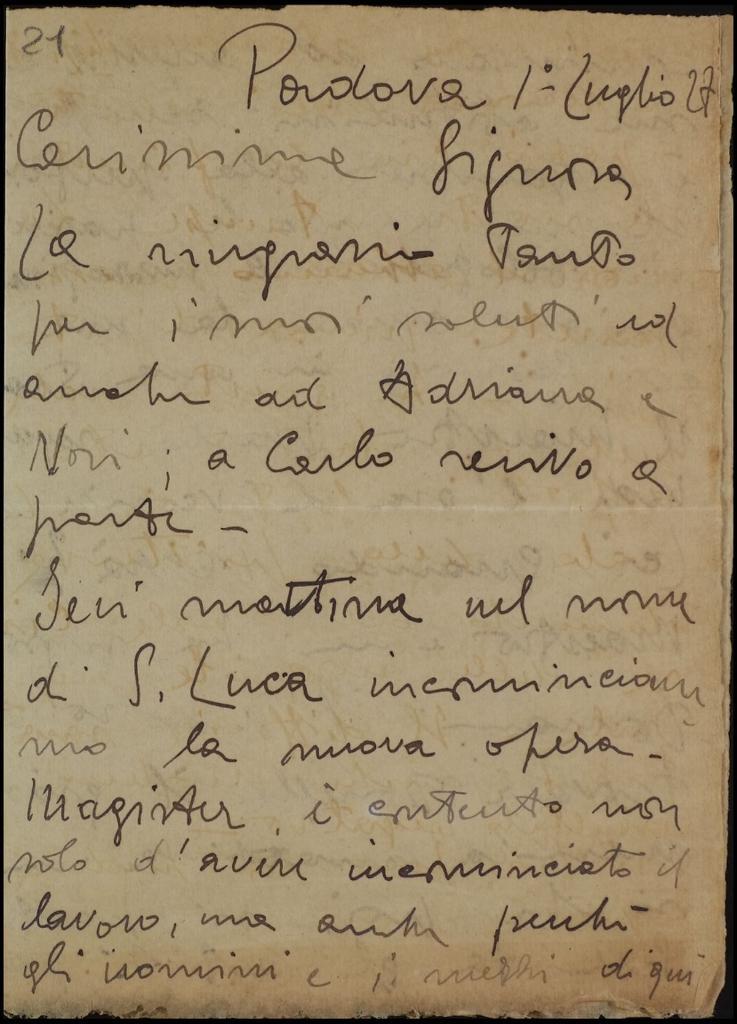 21
Padova 1º Luglio 27
Carissima Signora
La ringrazio tanto
per i suoi saluti ed
anche ad Adriana e
Nori; a Carlo scrivo a
parte -
Ieri mattina nel nome
di S. Luca incominciam
mo la nuova opera -
Magister è contento non
solo d'avere incominciato il
lavoro, ma anche perchè
gli uomini e i mezzi di qui